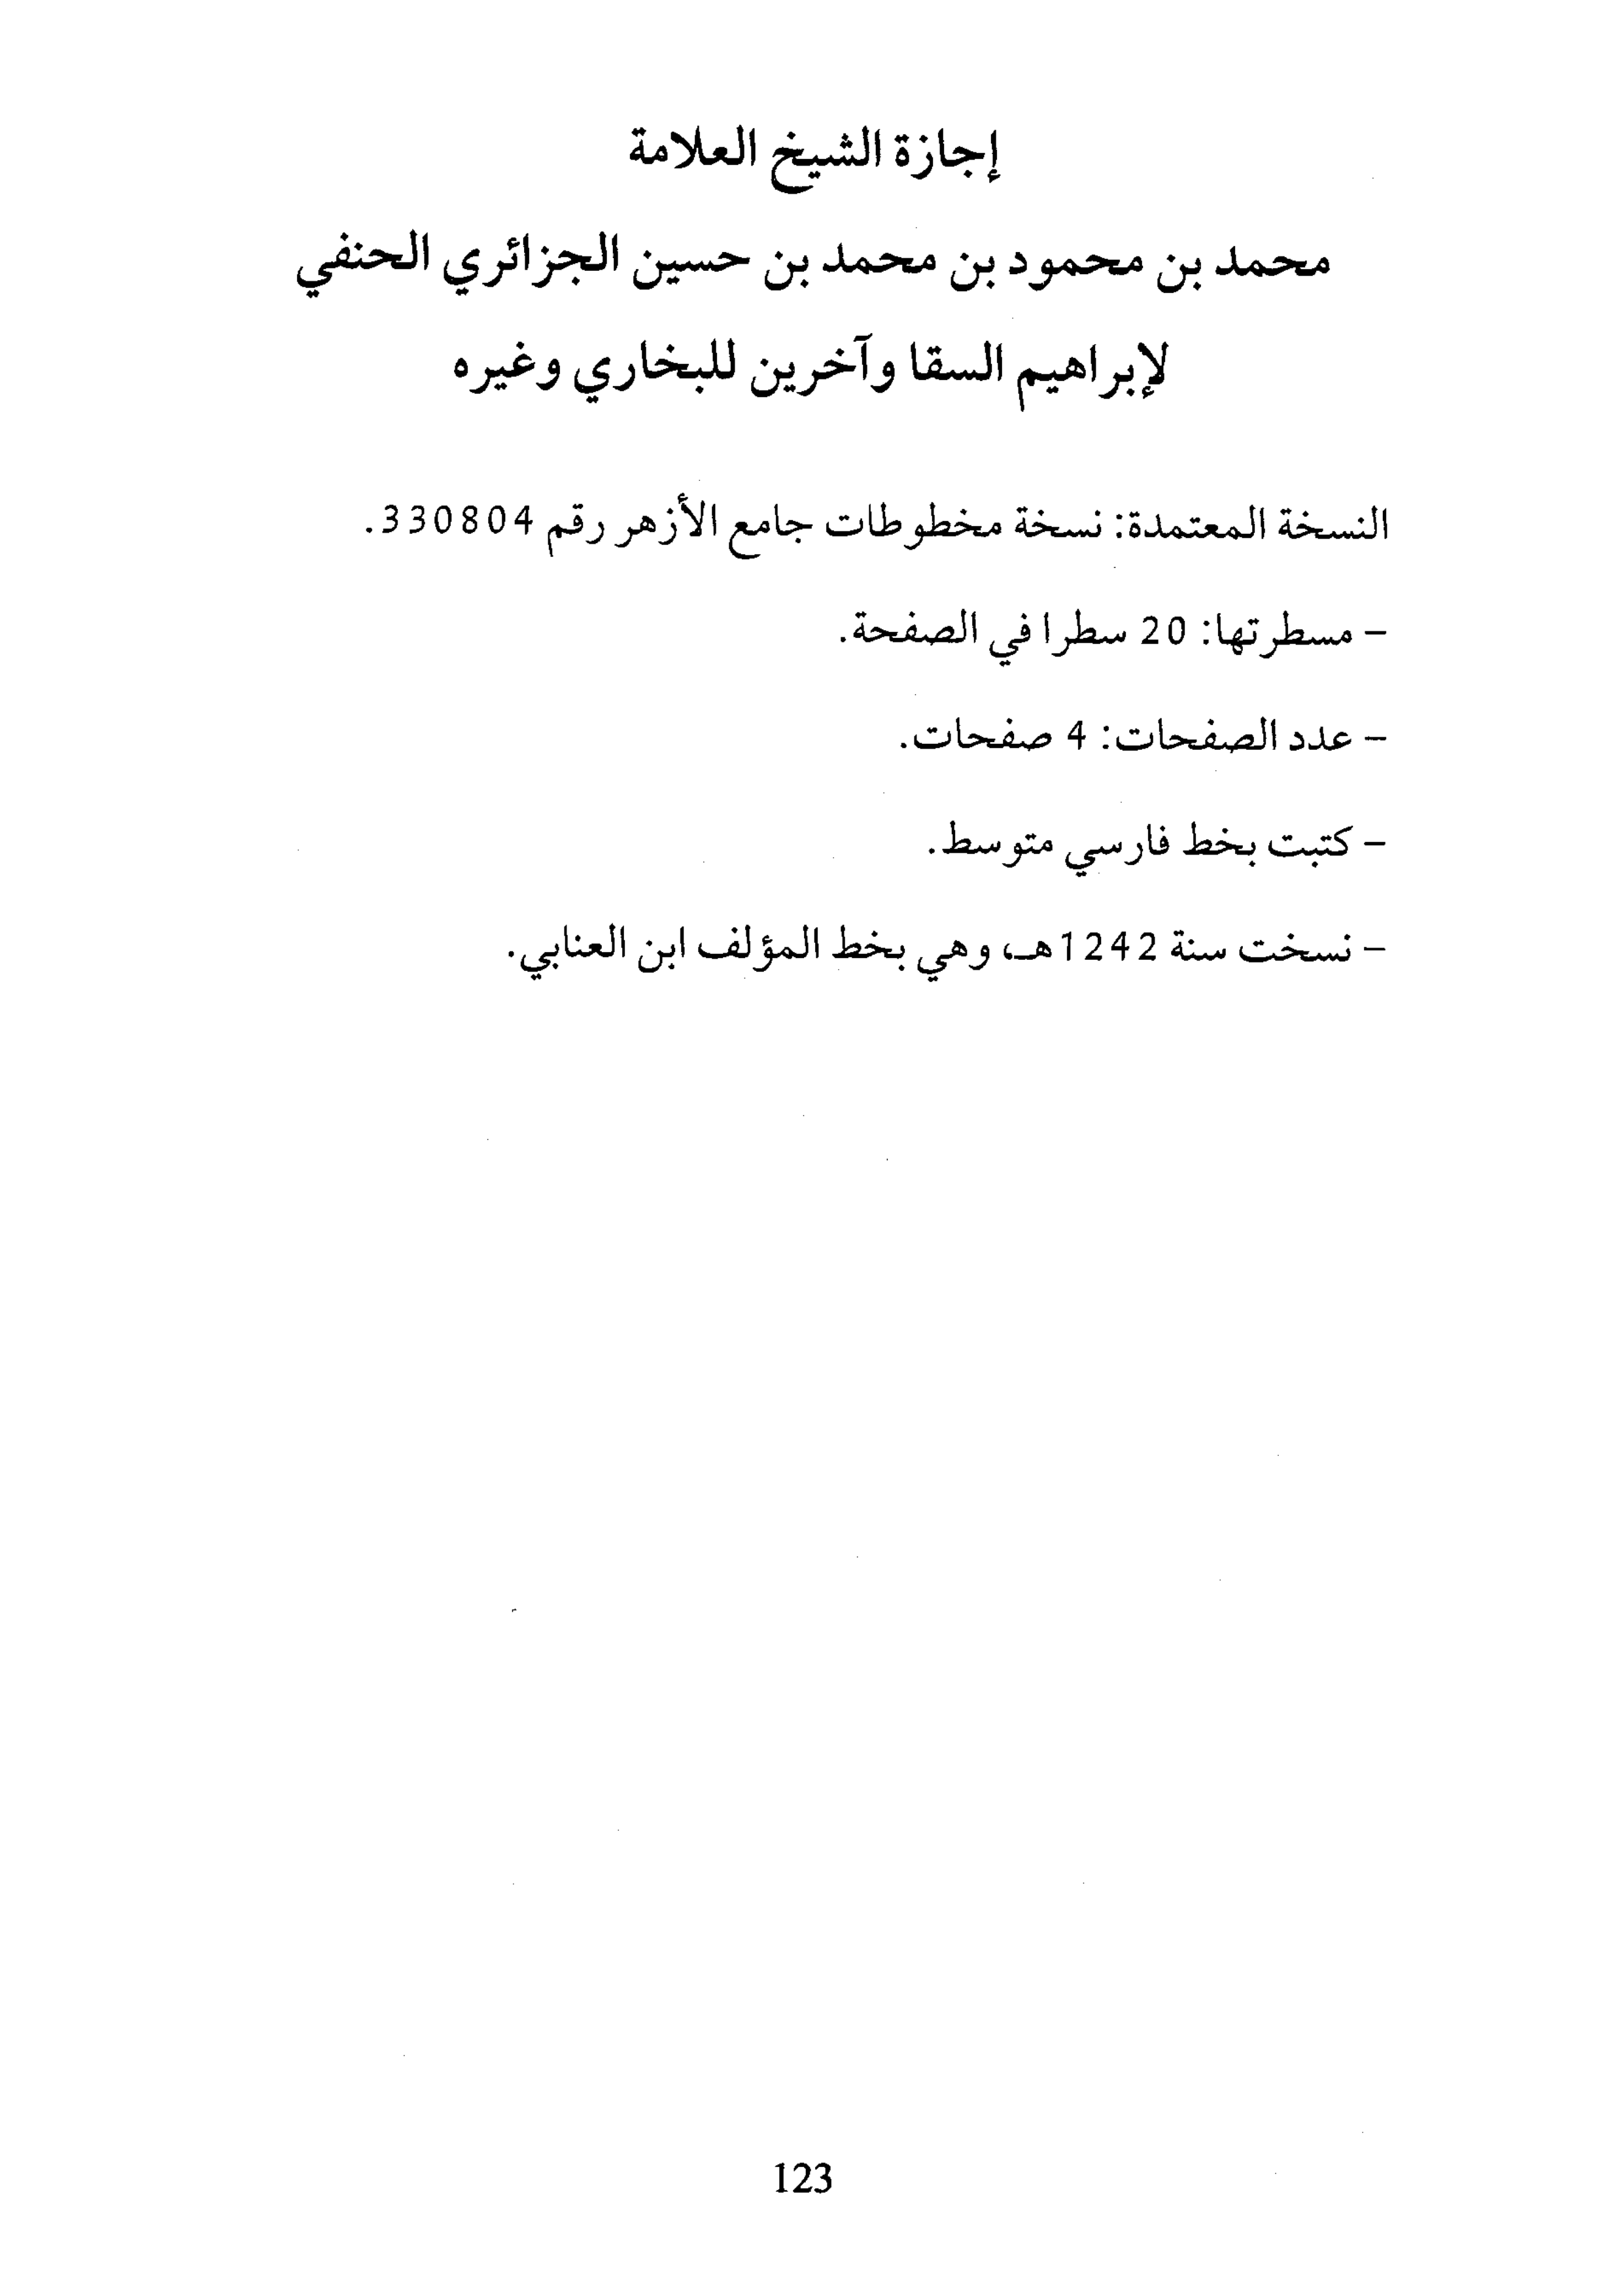 إجازة الشيخ العلامة
محمد بن محمود بن محمد بن حسين الجزائري الحنفي
لإبراهيم السقا وآخرين للبخاري وغيره
النسخة المعتمدة: نسخة مخطوطات جامع الأزهر رقم 330804.
- مسطرتها: 20 سطرا في الصفحة.
- عدد الصفحات: 4 صفحات.
- كتبت بخط فارسي متوسط.
- نسخت سنة 1242هـ، وهي بخط المؤلف ابن العنابي.
123